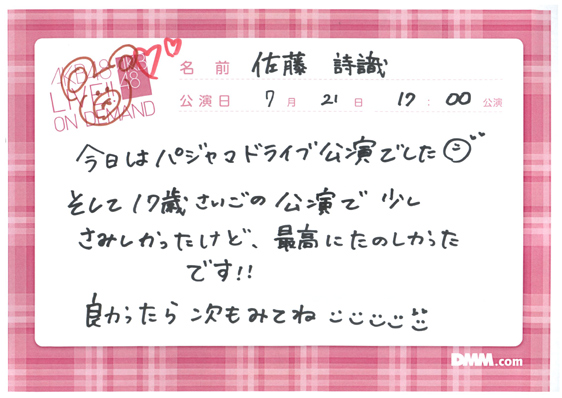 AKB48
LIVE!!
ON DEMAND
AKB48
名前 佐藤 詩識
公演日 7月 21日 17:00公演
今日はパジャマドライブ公演でした
そして17歳さいごの公演で 少し
さみしかったけど、最高にたのしかった
です!!
良かったら 次もみてね
DMM.com